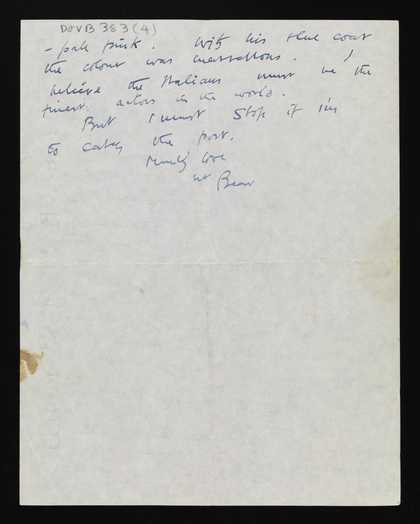 DOVB 383 (4)
- pale pink. With his blue coat
the colour was marvellous. I
believe the Italians must be the
finest actors in the world.
But I must stop if I'm
to catch the post.
love
Bear